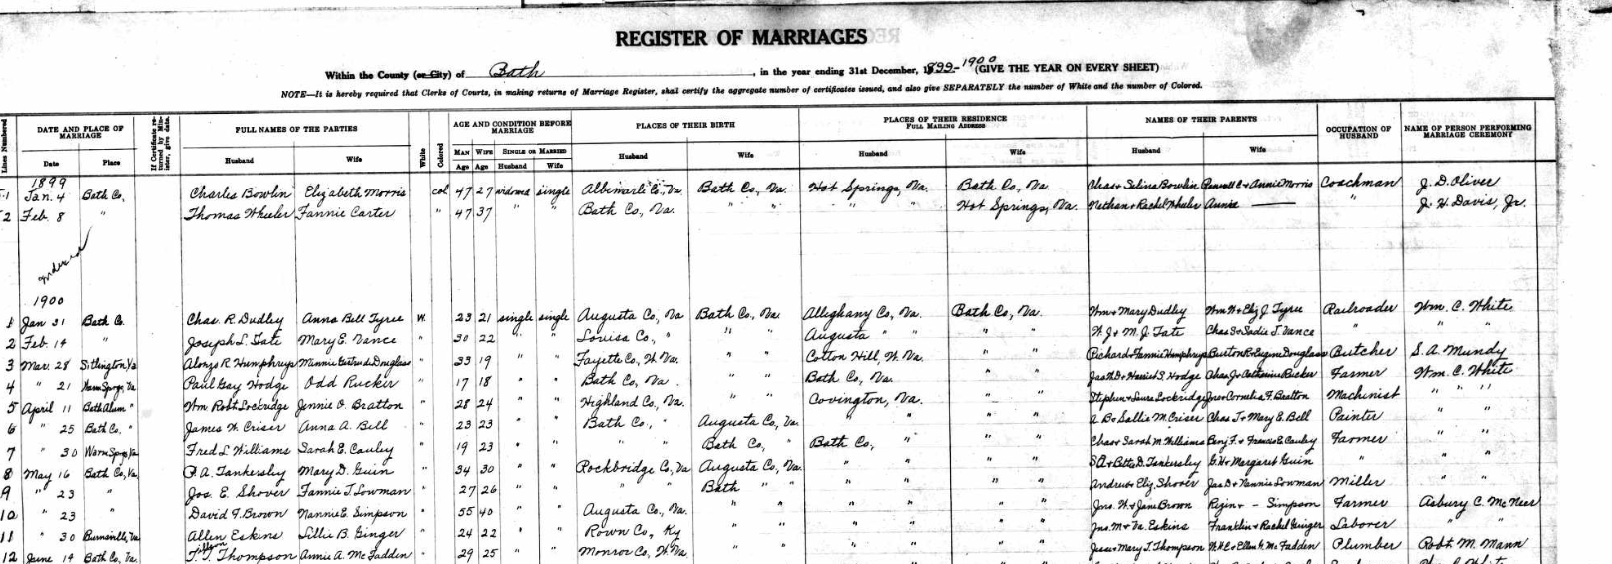 REGISTER OF MARRIAGES
Within the County (or City) of Bath, in the year ending 31st December, 1899-1900 (GIVE THE YEAR ON EVERY SHEET)
NOTE—It is hereby required that Clerks of Courts, in making returns of Marriage Register, shal certify the aggregate number of certificates issued, and also give SEPARATELY the number of White and the number of Colored.
Lines Numbered DATE AND PLACE OF MARRIAGE If Certificate returned by Minister, give date. FULL NAMES OF THE PARTIES White Colored AGE AND CONDITION BEFORE MARRIAGE PLACES OF THEIR BIRTH PLACES OF THEIR RESIDENCE Full Mailing Address NAMES OF THEIR PARENTS OCCUPATION OF HUSBAND NAME OF PERSON PERFORMING MARRIAGE CEREMONY
Date Place Husband Wife MAN Age WIFE Age SINGLE OR MARRIED Husband Wife Husband Wife Husband Wife Husband Wife
1899
1 Jan. 4 Bath Co, Charles Bowlin Elizabeth Morris col 47 27 widowed single Albimarli Co, Va. Bath Co, Va. Hot Springs, Va. Bath Co, Va. Chas & Selina Bowlin & Annie Morris Coachman J. D. Oliver
2 Feb. 8 " Thomas Wheeler Fannie Carter " 47 37 " " Bath Co, Va. " " " " Hot Springs, Va. Nathan & Rachel Wheeler Annie — " J. H. Davis, Jr.
1900
1 Jan 31 Bath Co. Chas. R. Dudley Anna Bell Tyree W. 23 21 single single Augusta Co, Va Bath Co, Va Alleghany Co, Va. Bath Co, Va. Wm & Mary Dudley Wm H & Eliz J. Tyree Railroader Wm. C. White
2 Feb. 14 " Joseph L. Tate Mary E. Vance " 30 22 " " Louisa Co, " " " Augusta " " " " W. J & M. J. Tate Chas S & Sadie J. Vance " " "
3 Mar. 28 Sitlington, Va Alonzo R Humphreys Minnie Gertrude Douglass " 33 19 " " Fayette Co, W. Va. " " Cotton Hill, W. Va. " " Richard & Fannie Humphreys Burton R & Eugine Douglass Butcher S. A. Mundy
4 " 21 Warm Spgs, Va Paul Gay Hodge Odd Rucker " 17 18 " " Bath Co, Va. " " Bath Co, Va. " " Jas W D & Harriet S. Hodge Chas J & Catherine Rucker Farmer Wm. C. White
5 April 11 Bath Alum " Wm Robt Lockridge Jennie O. Bratton " 28 24 " " Highland Co, Va. " " Covington, Va. " " Stephen & Laura Lockridge Jno & Cornelia F. Bratton Machinist " " "
6 " 25 Bath Co, " James W. Criser Anna A. Bell " 23 23 " " Bath Co, " Augusta Co, Va. " " " " A B & Sallie M. Criser Chas T & Mary E. Bell Painter " "
7 " 30 Warm Spgs, Va Fred L Williams Sarah E. Cauley " 19 23 " " " " Bath Co, " Bath Co, " " " Chas & Sarah M. Williams Benj F. & Francis E. Cauley Farmer " "
8 May 16 Bath Co, Va. A. Tankersley Mary D. Guin " 34 30 " " Rockbridge Co, Va Augusta Co, Va. " " " " D. Tankersley G. H & Margaret Guin " " "
9 " 23 " Jos. E. Shover Fannie T. Lowman " 27 26 " " " " Bath " " " " " Andrew & Eliz Shover Jas D & Nannie Lowman Miller " "
10 " 23 " David F. Brown Nannie E. Simpson " 55 40 " " Augusta Co, Va. " " " " " " Jno. W. & Jane Brown Rezin & — Simpson Farmer Asbury C. McNeer
11 " 30 Burnsville, Va Allen Eskins Lillie B. Ginger " 24 22 " " Rown Co, Ky " " " " " " Jno. M & Va. Eskins Franklin & Rachel Ginger Laborer " "
12 June 14 Bath Co, Va. T. T. Thompson Annie A. McFadden " 29 25 " " Monroe Co, W. Va. " " " " " " Jesse & Mary T. Thompson W. H. C & Ellen G. McFadden Plumber Robt M. Mann